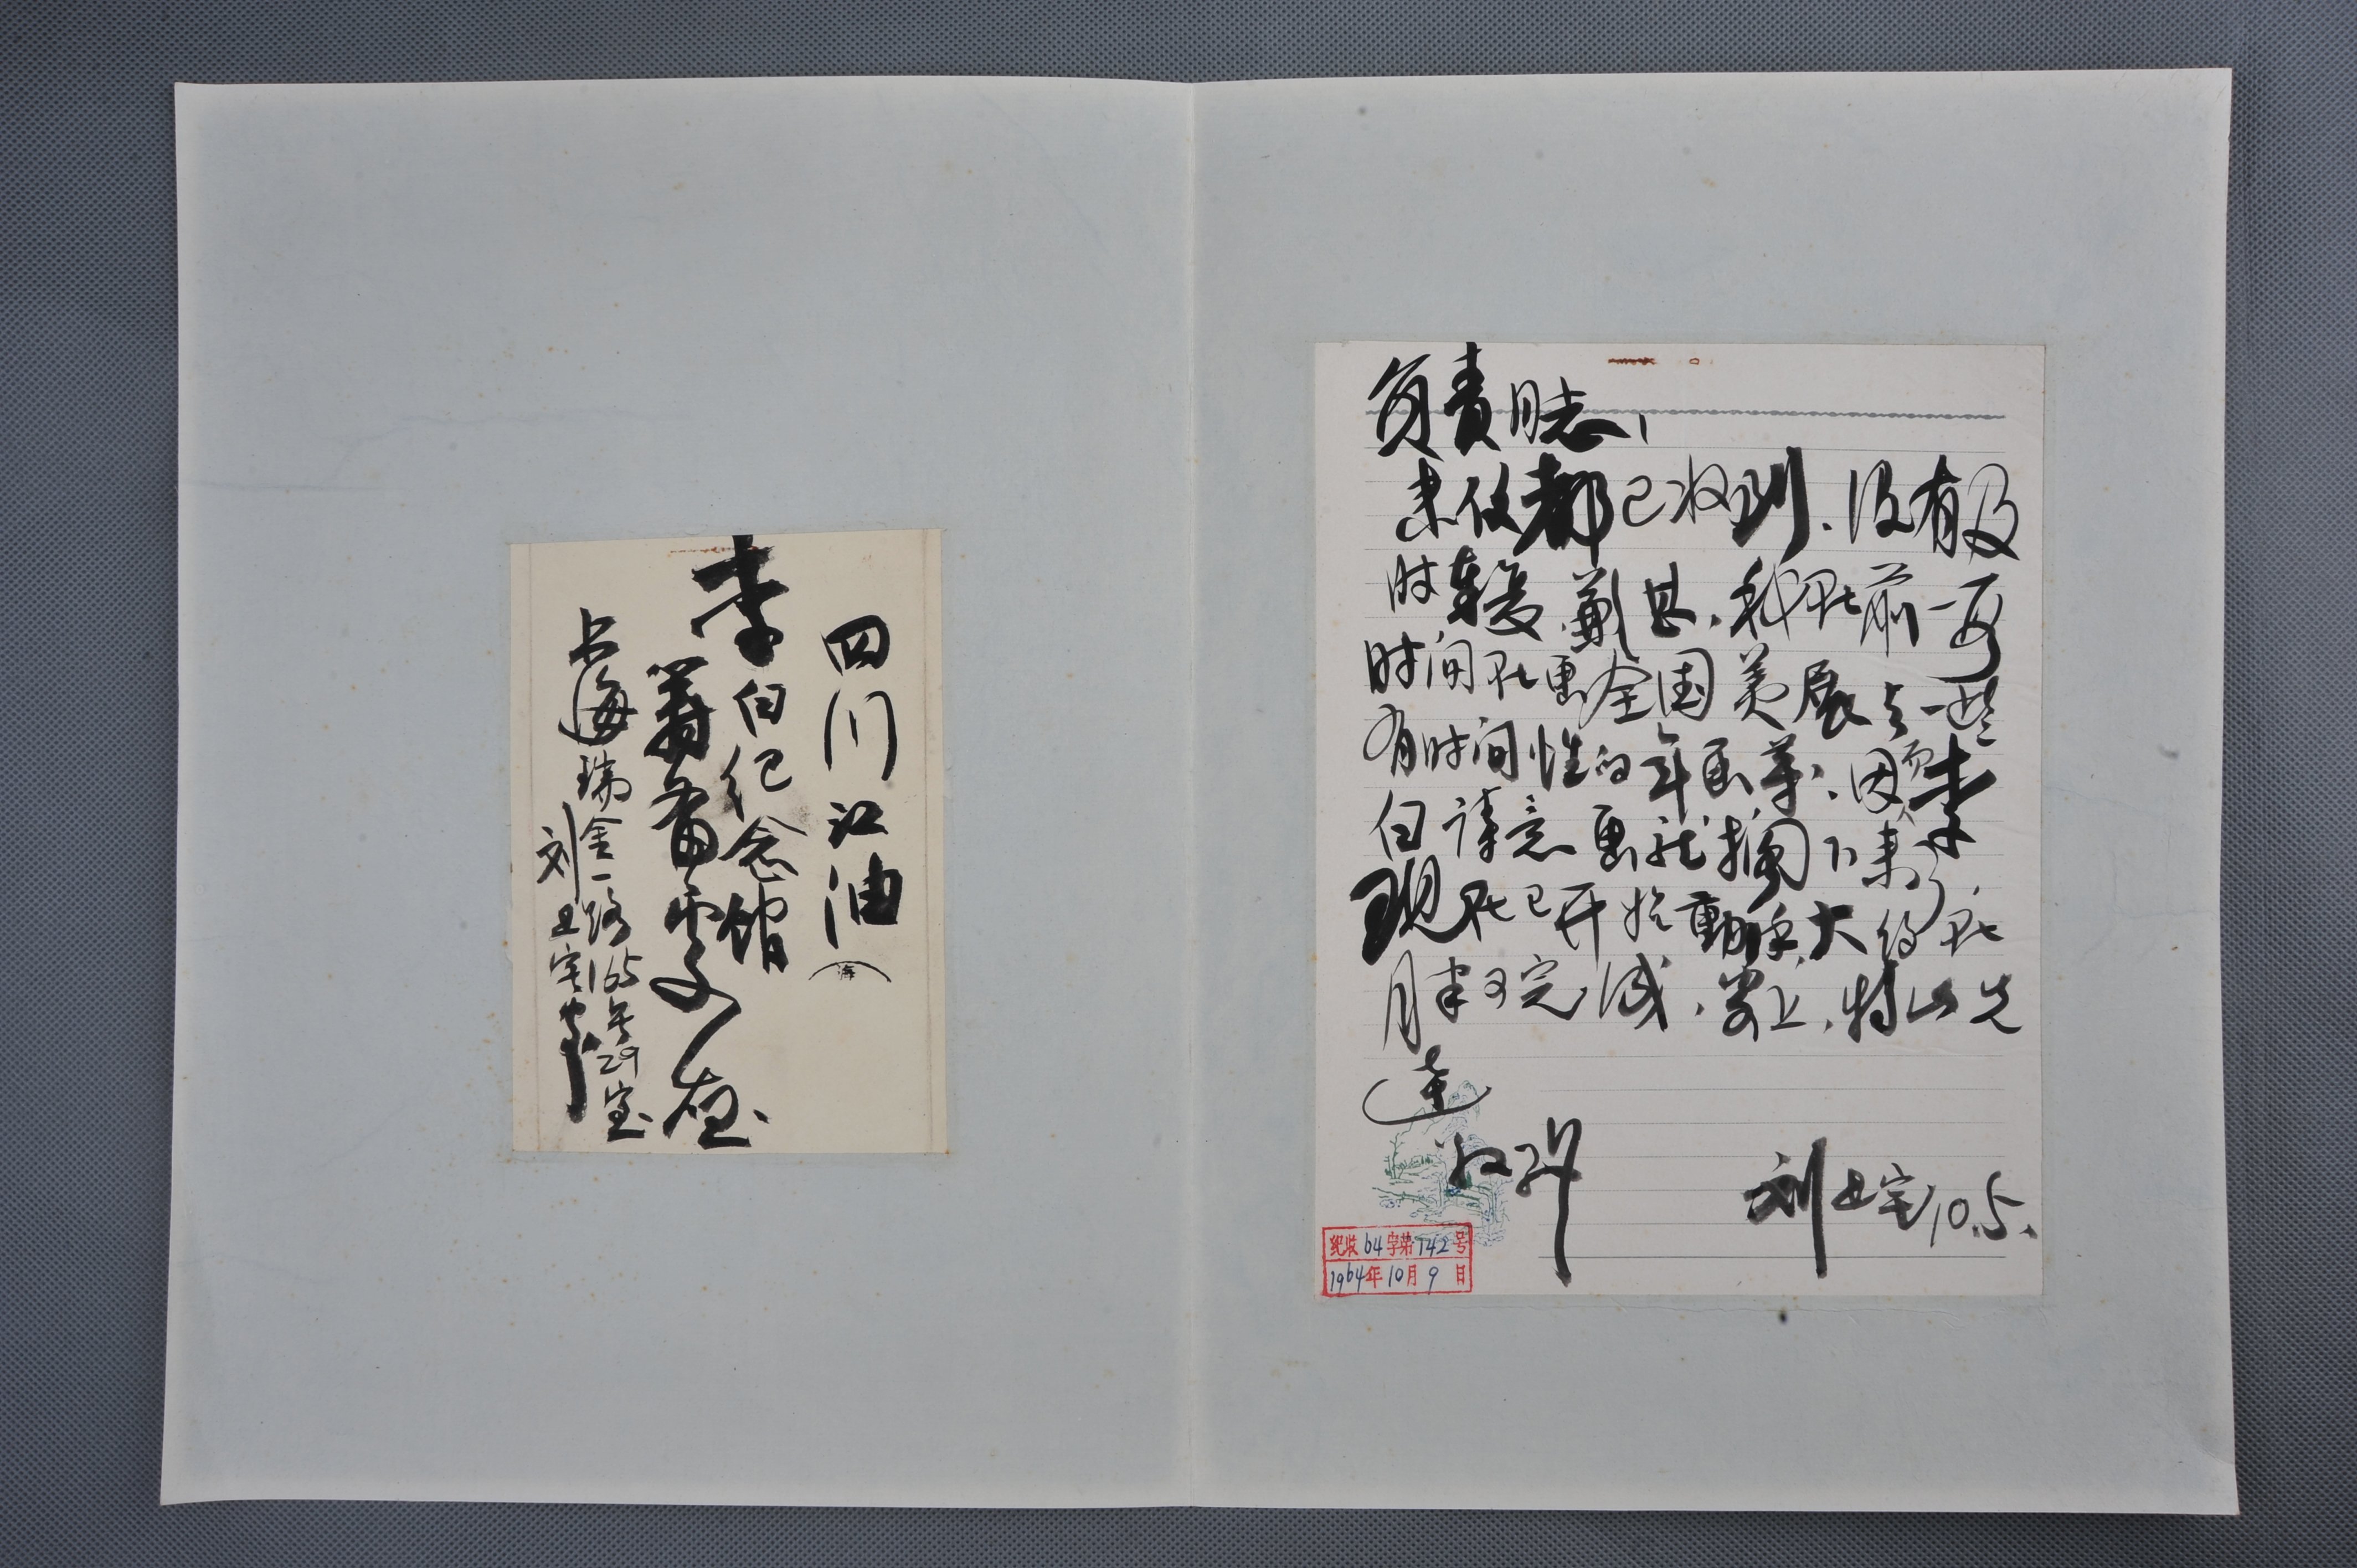 四川江油
李白纪念馆
筹备委员会
上海瑞金一路165号29室
刘旦宅
负责同志、
来信都已收到.没有及
时辍复,歉甚.我在前一段
时间在画全国美展与一些
有时间性的年画等.因而李
白诗意画就搁下来了,
现在已开始動手大约在
月半可完成.寄上.特此先
达
敬礼
刘旦宅10.5.
纪收64字第742号
1964年10月9日